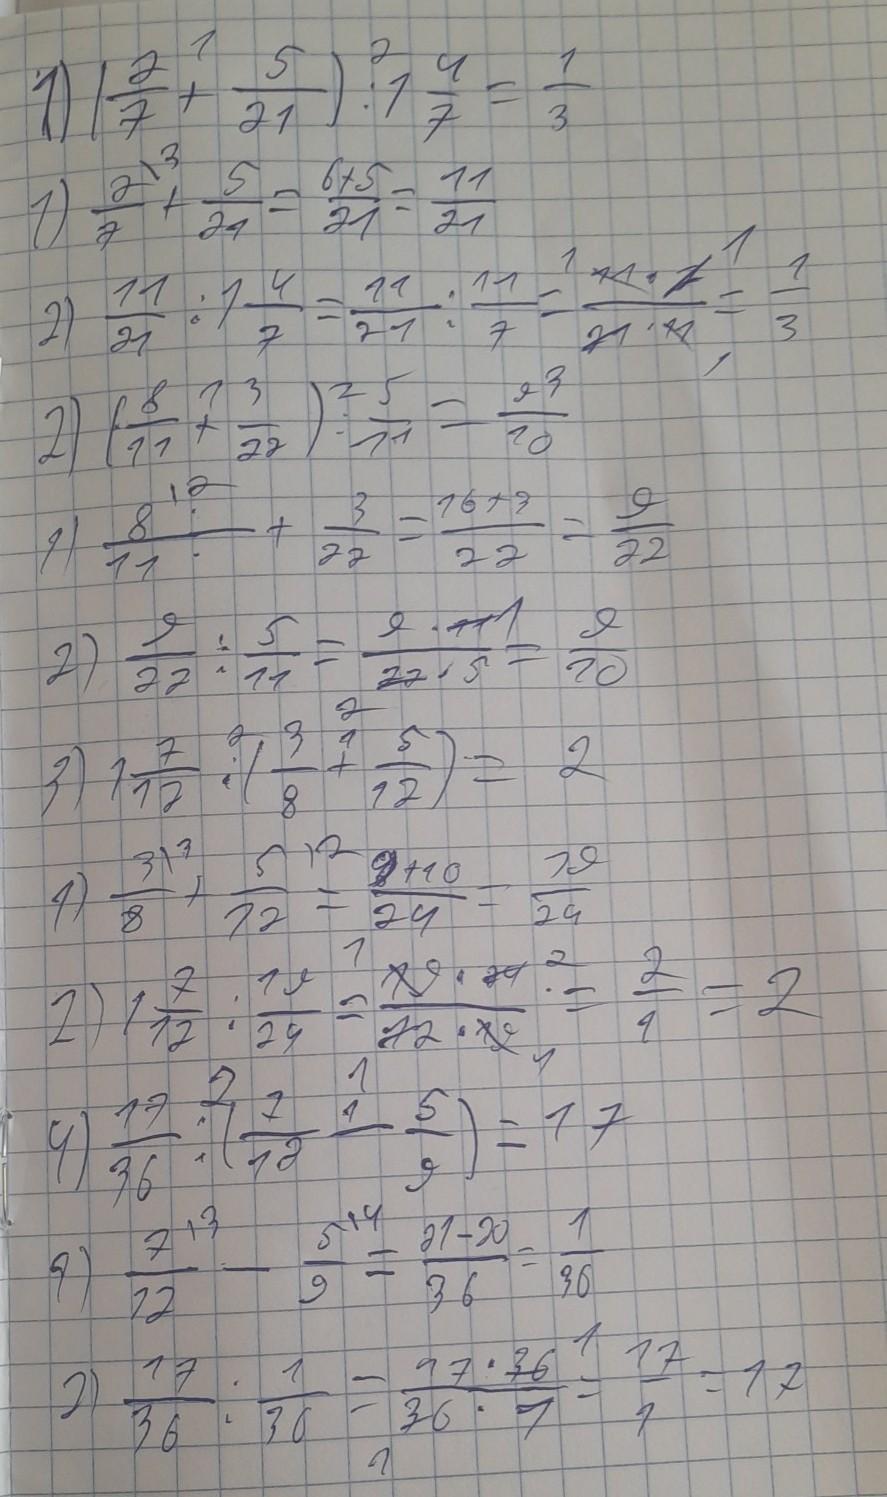 1) (2/7 + 5/21) : 1 4/7 = 1/3
1) 2/7\3 + 5/21 = 6+5/21 = 11/21
2) 11/21 : 1 4/7 = 11/21 : 11/7 = 11·7/21·11 = 1/3
2) (8/11 + 3/22) : 5/11 = 93/10
1) 8/11\2 + 3/22 = 16+3/22 = 9/22
2) 9/22 : 5/11 = 9·11/22·5 = 9/10
3) 1 7/12 : (3/8 + 5/12) = 2
1) 3/8\3 + 5/12\2 = 9+10/24 = 19/24
2) 1 7/12 : 19/24 = 19·24/12·19 = 2/1 = 2
4) 17/36 : (7/12 - 5/9) = 17
1) 7/12\3 - 5/9\4 = 21-20/36 = 1/36
2) 17/36 : 1/36 = 17·36/36·1 = 17/1 = 17